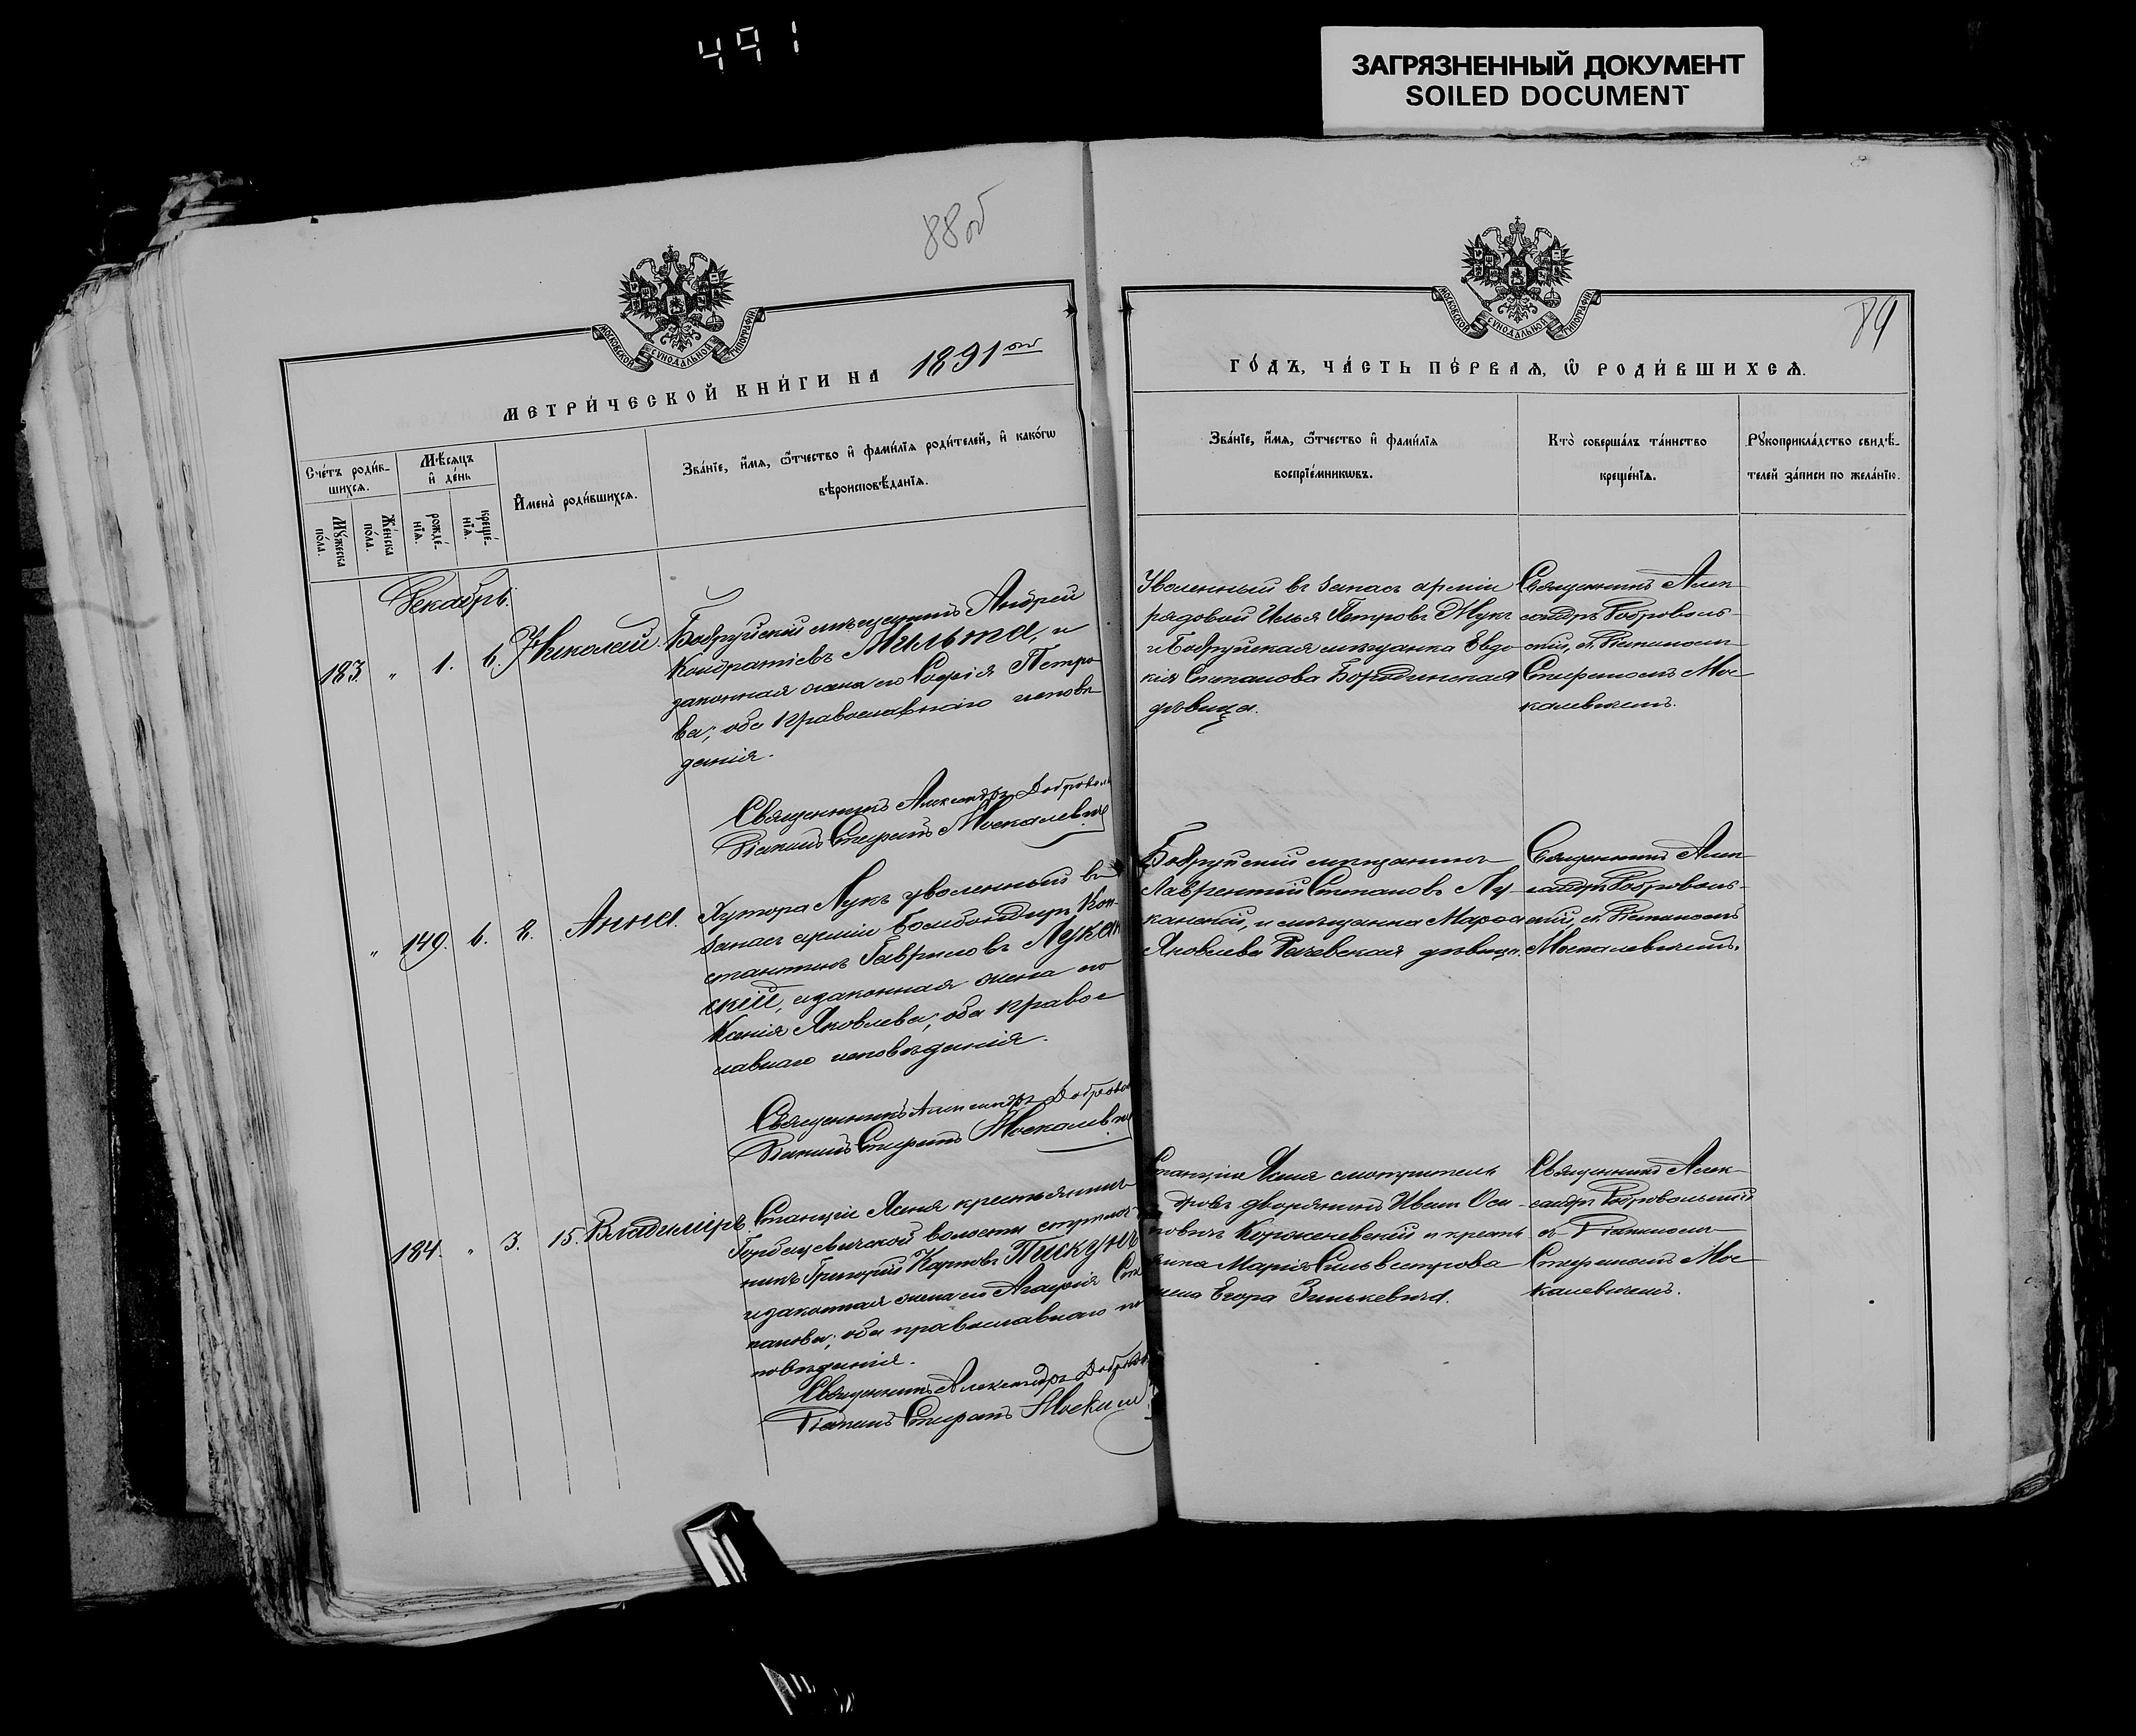 491
ЗАГРЯЗНЕННЫЙ ДОКУМЕНТ
SOILED DOCUMENT
88об
МОСКОВСКОЙ СѴНОДАЛЬНОЙ ТИПОГРАФІИ
МЕТРИ́ЧЕСКОЙ КНИ́ГИ НА 1891ой
Сче́тъ роди́в-
шихсѧ.
Мꙋ́жеска
по́ла.
Же́нска
по́ла.
Мѣ́сѧцъ
и҆ де́нь
рожде́-
нїѧ.
креще́-
нїѧ.
И҆мена̀ роди́вшихсѧ.
Зва́нїе, и҆́мѧ, ѻ҆́тчество и҆ фами́лїѧ роди́телей, и҆ како́гѡ
вѣроисповѣ́данїѧ.
Декабрь.
183. " 1. 6. Николай.
Бобруйскій мѣщанинъ Андрей
Кондратіевъ Мильта, и
законная жена его Софія Петро
ва; оба православнаго исповѣ
данія.
Священникъ Александръ Доброволь
Діаконъ Спиридонъ Москалевичъ
" 149. 6. 8. Анна.
Хутора Лукъ уволенный въ
запасъ арміи бомбардиръ Кон-
стантинъ Гавриловъ Лукан
скій, и законная жена его
Ксенія Яковлева; оба правос
лавнаго исповѣданія.
Священникъ Александръ Доброво
Діаконъ Спиридонъ Москалевич
184. " 3. 15. Владиміръ
Станціи Ясень крестьянинъ
Горбацевичской волости стрѣлоч
никъ Григорій Карповъ Пискунъ
и законная жена его Агафія Сте
панова; оба православнаго ис
повѣданія.
Священникъ Александръ Доброво
Діаконъ Спиридонъ Москал
89
МОСКОВСКОЙ СѴНОДАЛЬНОЙ ТИПОГРАФІИ
ГО́ДЪ, ЧА́СТЬ ПЕ́РВАѦ, Ѽ РОДИ́ВШИХСѦ.
Зва́нїе, и҆́мѧ, ѻ҆́тчество и҆ фами́лїѧ
воспрїе́мникѡвъ.
Кто̀ соверша́лъ та́инство
креще́нїѧ.
Рꙋкоприкла́дство свидѣ́-
телей за́писи по жела́нїю.
Уволенный въ запасъ арміи
рядовой Илья Петровъ Мукъ
и Бобруйская мѣщанка Евдо
кія Степанова Бородинская
дѣвица.
Священникъ Алек-
сандръ Доброволь-
скій, съ Діакономъ
Спиридономъ Мос-
калевичемъ.
Бобруйскій мѣщанинъ
Лаврентій Степановъ Лу-
канскій, и мѣщанка Марѳа
Яковлева дѣвица.
Священникъ Алек-
сандръ Доброволь-
скій, съ Діакономъ
Москалевичемъ.
Станціи Ясень смотритель
дровъ дворянинъ Иванъ Оси-
повичъ Короженевскій и кресть
янка Марія Сильвестрова
жена Егора Зинькевича.
Священникъ Алек-
сандръ Добровольскій
съ Діакономъ
Спиридономъ Мос-
калевичемъ.